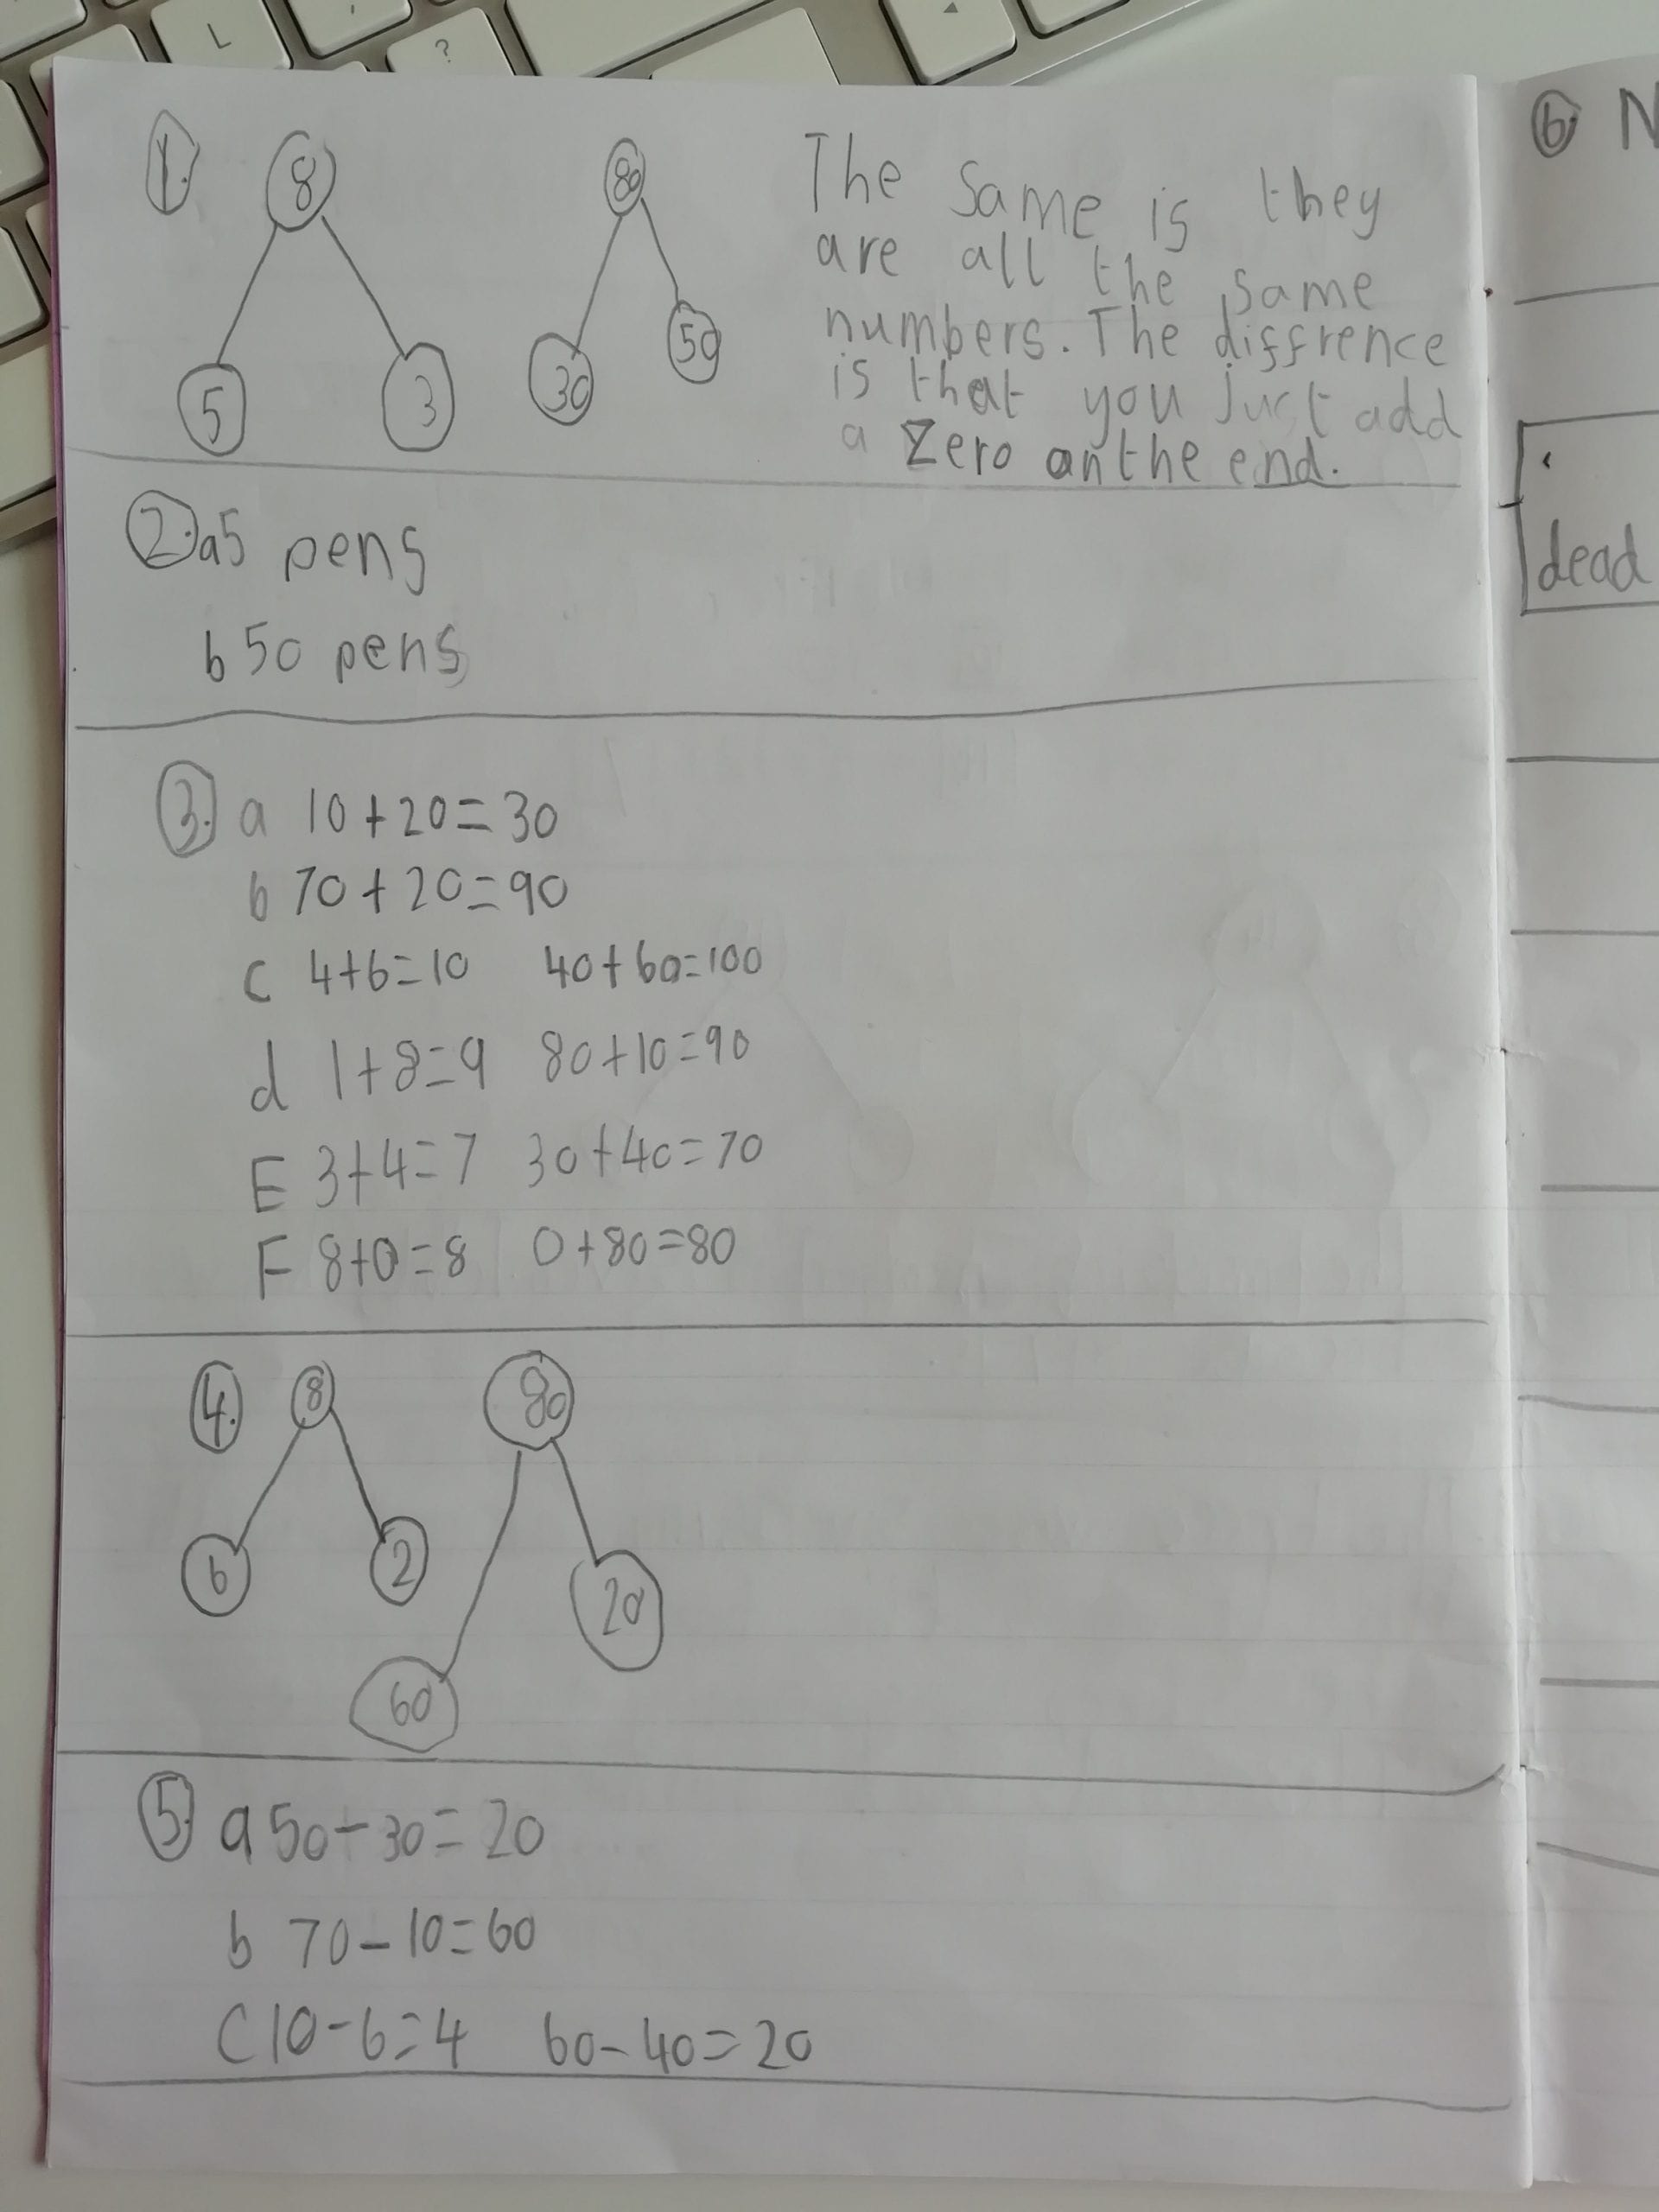 L
?
1.
8
5
3
80
30
50
The same is they
are all the same
numbers. The diffrence
is that you just add
a Zero an the end.
2. a 5 pens
b 50 pens
3. a 10+20=30
b 70+20=90
c 4+6=10 40+60=100
d 1+8=9 80+10=90
E 3+4=7 30+40=70
F 8+0=8 0+80=80
4.
8
6
2
80
60
20
5. a 50-30=20
b 70-10=60
C 10-6=4 60-40=20
6. N
dead